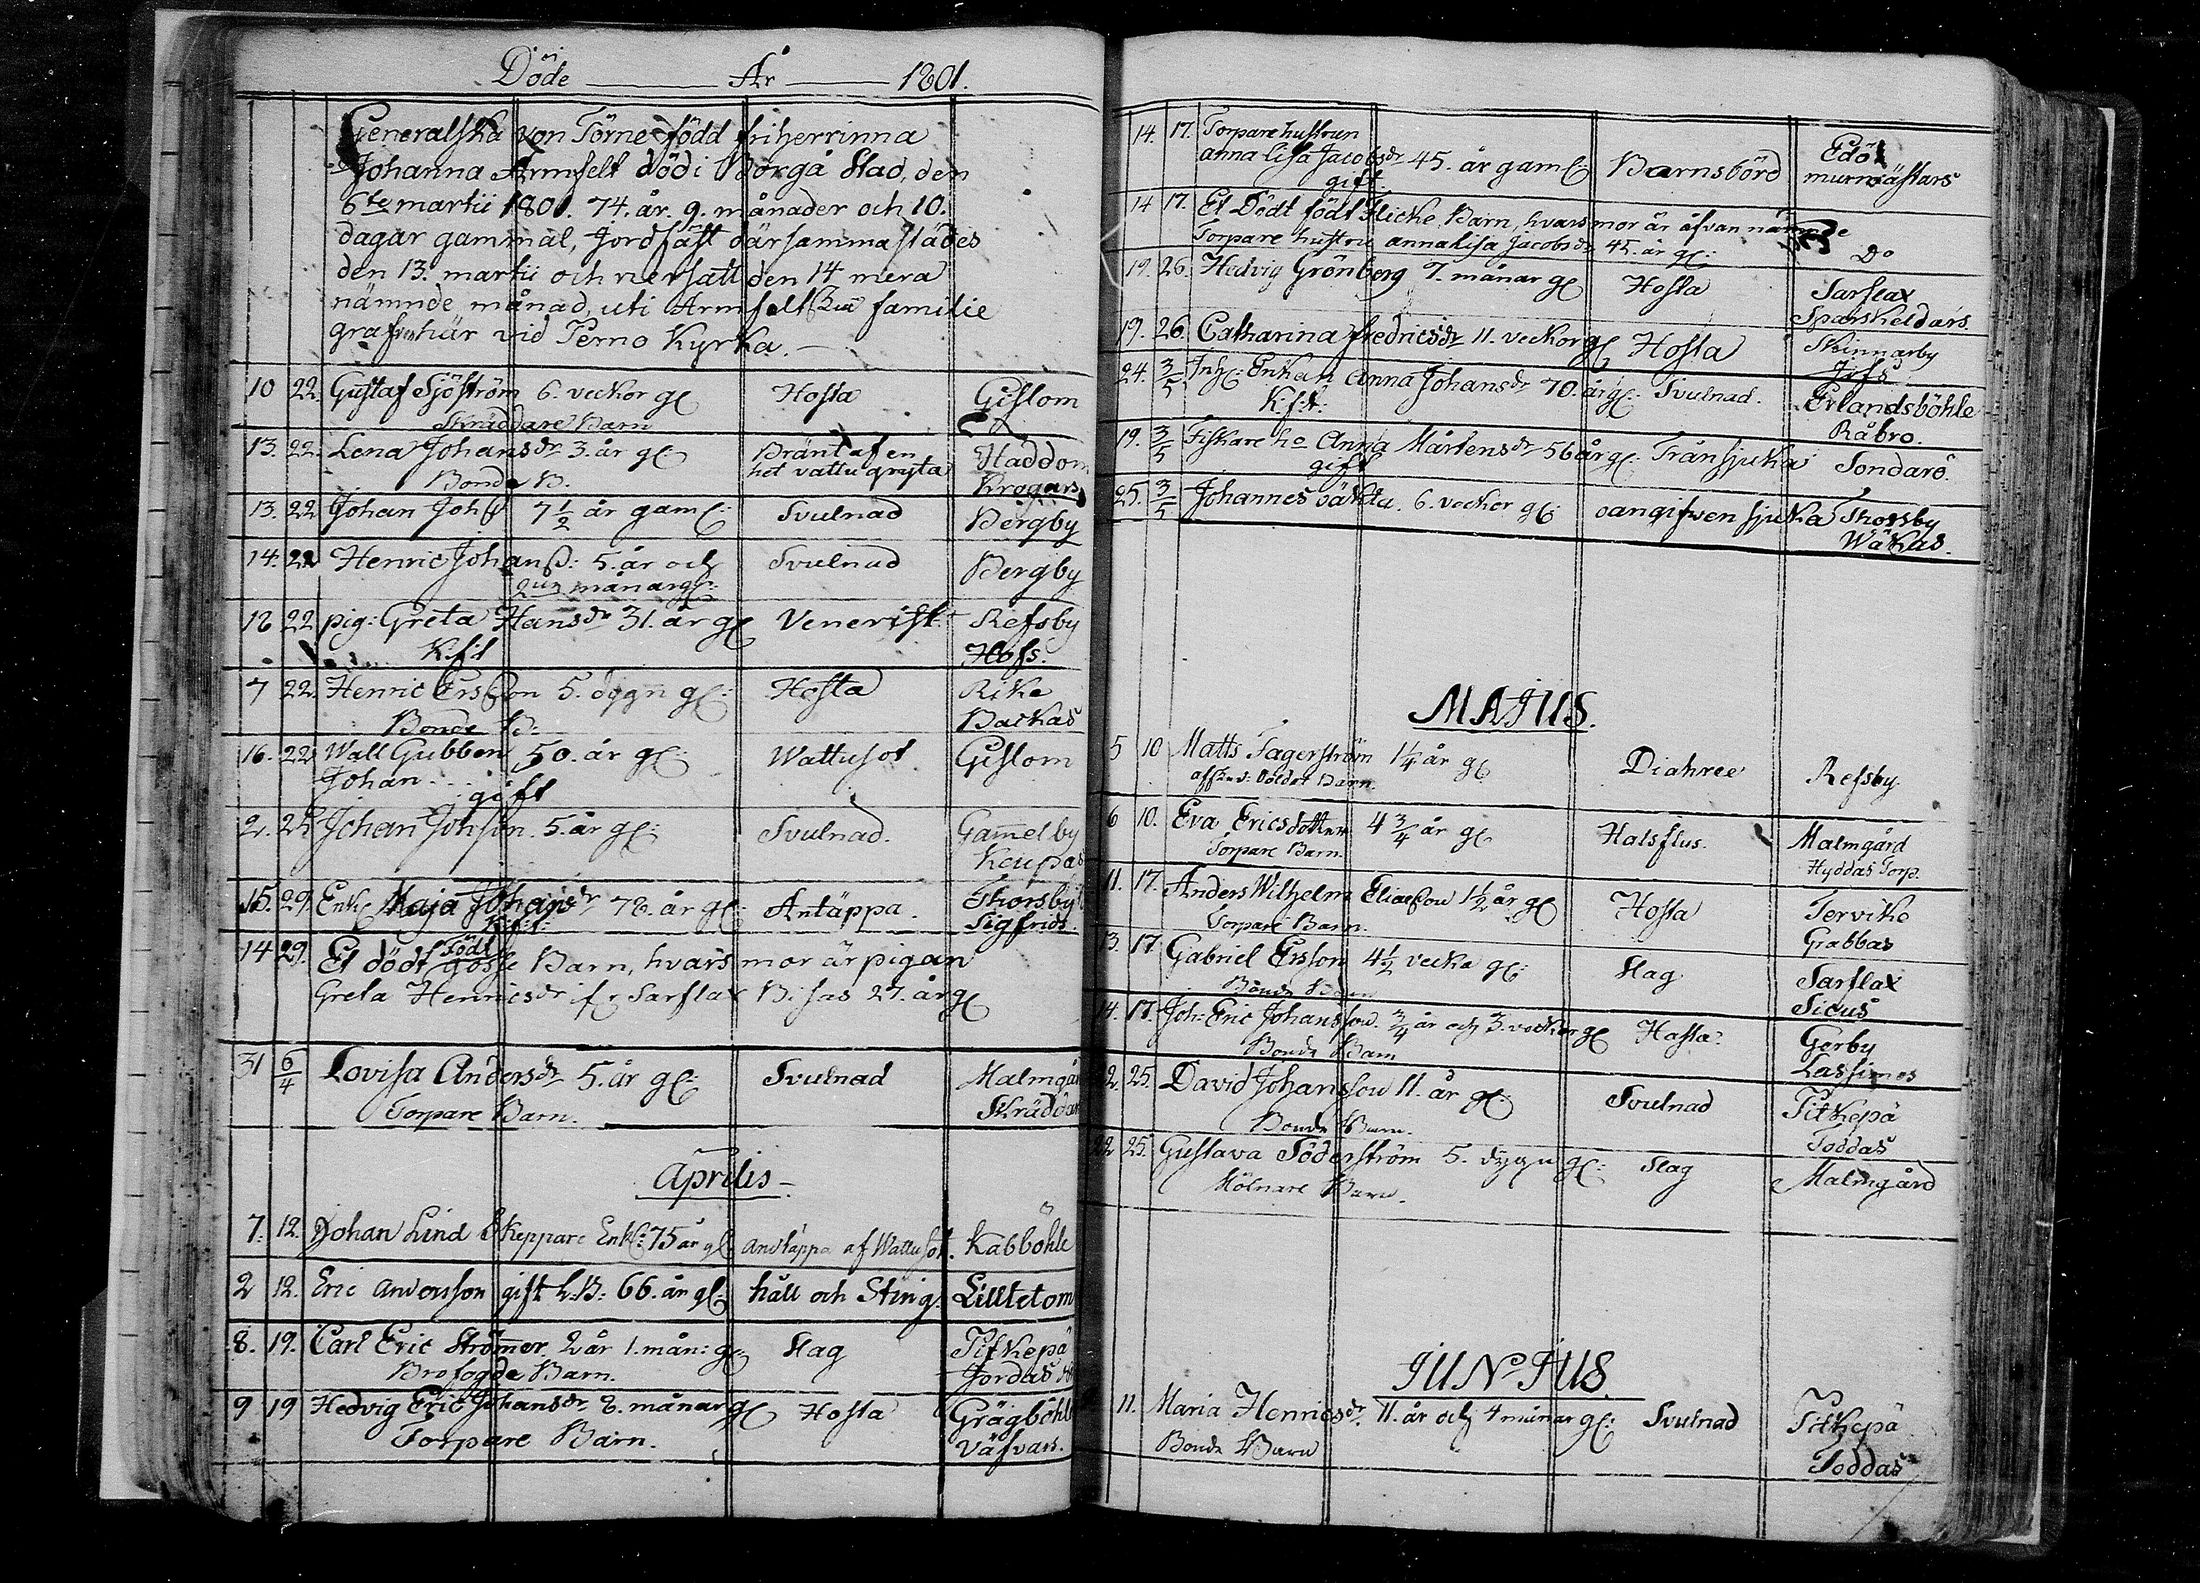 Döde År 1801.
Generalska von Törne född friherrinna
Johanna Armfelt död i Borgå Stad, den
6te martii 1801. 74. år. 9. månader och 10.
dagar gammal, Jordfäst därsammastädes
den 13. martii och nersatt den 14 mera
nämnde månad, uti Armfeltska familie
grafven här vid Perno Kyrka.
10 22. Gustaf Sjöström 6. veckor gl Hosta Gislom
Skräddare Barn
13. 22. Lena Johansdr 3. år gl Bränt af en Haddom
Bonde B. het vattu gryta Krogars
13. 22 Johan Johss 7 1/2 år gaml: Svulnad Bergby
14. 22 Henric Johanss: 5. år och Svulnad Bergby
månar gl:
18 22 pig: Greta Hansdr 31. år gl Venerisk Refsby
Hofs.
7 22. Henric Ersson 5. dygn gl: Hosta Rike
Bonde B: Backas
16. 22 Wall Gubben 50. år gl: Wattusot Gislom
Johan gift
2. 25 Johan Johsson. 5. år gl: Svulnad. Gammelby
Keupas
15. 29. Enk: Maja Johansdr 78. år gl: Antäppa. Thorsby
Sigfrids.
14 29. Et dödt född gosse Barn, hvars mor är pigan
Greta Henricsdr ifr. Sarflax Bisas 27. år gl
31 6/4 Lovisa Andersdr 5. år gl: Svulnad Malmgår
Torpare Barn. Skräddar
Aprilis
7. 12. Johan Lind Skeppare Enkl: 75 år gl: Andtäppa af Wattusot. Kabböhle
2 12. Eric Andersson gift L: B: 66. år gl: håll och Sting. Lilltetom
8. 19. Carl Eric Strömmer 2 år 1. mån: gl: Slag Pitkepä
Brofogde Barn. Jordas
9 19 Hedvig Eric Johansdr 8. månar gl Hosta Grägböhle
Torpare Barn. Väfvars.
14. 17. Torpare hustrun
anna Lisa Jacobsdr 45. år gaml: Barnsbörd Edö
gift. murmästars
14 17. Et Dödt födt Flicke Barn, hvars mor är åfvan nämnde
Torpare hustru annaLisa Jacobsdr 45. år gl: Do
19. 26. Hedvig Grönberg 7. månar gl Hosta Sarflax
Sparskeldars.
19. 26. Catharina fredricsdr 11. veckor gl Hosta Skinnarby
24. 3/5 Inh: Enkan Anna Johansdr 70. år gl: Svulnad. Erlandsböhle
Råbro.
19. 3/5 Fiskare ho Anna Mårtensdr 56 år gl: Trånsjuka Sondarö.
gift
25. 3/5 Johannes 6. veckor gl: oangifven sjuka Thorsby
Wäkas.
MAJUS.
5 10 Matts Fagerström 1 1/4 år gl Diahree Refsby
Barn.
6 10. Eva Ericsdotter 4 3/4 år gl Halsflus. Malmgård
Torpare Barn. Hyddas Torp.
11. 17. Anders Wilhelm Eliaeson 1 1/2 år gl Hosta Tervike
Torpare Barn. Grabbas
13. 17. Gabriel Ersson 4 1/2 vecka gl: Slag Sarflax
Bonde Barn Sicus
14. 17. Joh: Eric Johansson. 3/4 år och 3. veckor gl Hosta Gerby
Bonde Barn Lassinos
22. 25. David Johansson 11. år gl: Svulnad Pitkepä
Bonde Barn. Toddas
22 25. Gustava Söderström 5. dygn gl: Slag Malmgård
Mölnare Barn.
JUNIUS.
11. Maria Henricsdr. 11. år och 4 månar gl: Svulnad Pitkepä
Bonde Barn Toddas